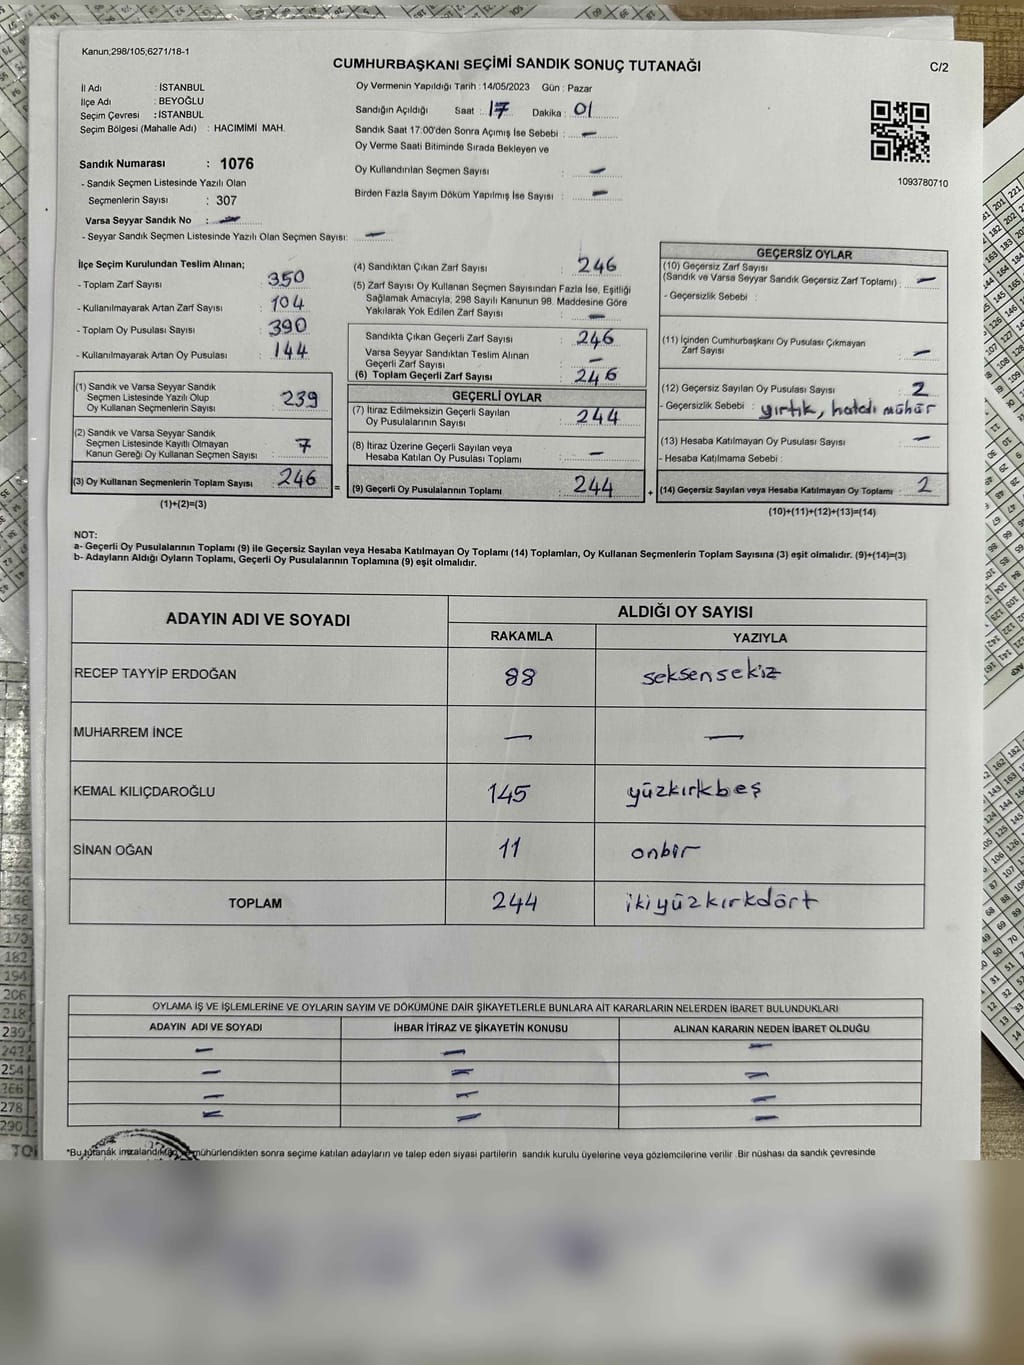 Kanun;298/105;6271/18-1
CUMHURBAŞKANI SEÇİMİ SANDIK SONUÇ TUTANAĞI
C/2
İl Adı : İSTANBUL
İlçe Adı : BEYOĞLU
Seçim Çevresi : İSTANBUL
Seçim Bölgesi (Mahalle Adı) : HACIMİMİ MAH.
Sandık Numarası : 1076
- Sandık Seçmen Listesinde Yazılı Olan
Seçmenlerin Sayısı : 307
Varsa Seyyar Sandık No : —
- Seyyar Sandık Seçmen Listesinde Yazılı Olan Seçmen Sayısı: —
Oy Vermenin Yapıldığı Tarih : 14/05/2023 Gün : Pazar
Sandığın Açıldığı Saat : 17 Dakika : 01
Sandık Saat 17:00'den Sonra Açımış İse Sebebi : —
Oy Verme Saati Bitiminde Sırada Bekleyen ve
Oy Kullandırılan Seçmen Sayısı : —
Birden Fazla Sayım Döküm Yapılmış İse Sayısı : —
1093780710
İlçe Seçim Kurulundan Teslim Alınan;
- Toplam Zarf Sayısı : 350
- Kullanılmayarak Artan Zarf Sayısı : 104
- Toplam Oy Pusulası Sayısı : 390
- Kullanılmayarak Artan Oy Pusulası : 144
(1) Sandık ve Varsa Seyyar Sandık
Seçmen Listesinde Yazılı Olup
Oy Kullanan Seçmenlerin Sayısı : 239
(2) Sandık ve Varsa Seyyar Sandık
Seçmen Listesinde Kayıtlı Olmayan
Kanun Gereği Oy Kullanan Seçmen Sayısı : 7
(3) Oy Kullanan Seçmenlerin Toplam Sayısı : 246
(1)+(2)=(3)
(4) Sandıktan Çıkan Zarf Sayısı : 246
(5) Zarf Sayısı Oy Kullanan Seçmen Sayısından Fazla İse, Eşitliği
Sağlamak Amacıyla, 298 Sayılı Kanunun 98. Maddesine Göre
Yakılarak Yok Edilen Zarf Sayısı : —
Sandıkta Çıkan Geçerli Zarf Sayısı : 246
Varsa Seyyar Sandıktan Teslim Alınan
Geçerli Zarf Sayısı : —
(6) Toplam Geçerli Zarf Sayısı : 246
GEÇERLİ OYLAR
(7) İtiraz Edilmeksizin Geçerli Sayılan
Oy Pusulalarının Sayısı : 244
(8) İtiraz Üzerine Geçerli Sayılan veya
Hesaba Katılan Oy Pusulası Toplamı : —
= (9) Geçerli Oy Pusulalarının Toplamı : 244
GEÇERSİZ OYLAR
(10) Geçersiz Zarf Sayısı
(Sandık ve Varsa Seyyar Sandık Geçersiz Zarf Toplamı) : —
- Geçersizlik Sebebi :
(11) İçinden Cumhurbaşkanı Oy Pusulası Çıkmayan
Zarf Sayısı : —
(12) Geçersiz Sayılan Oy Pusulası Sayısı : 2
- Geçersizlik Sebebi : yırtık, hatalı mühür
(13) Hesaba Katılmayan Oy Pusulası Sayısı : —
- Hesaba Katılmama Sebebi :
+ (14) Geçersiz Sayılan veya Hesaba Katılmayan Oy Toplamı : 2
(10)+(11)+(12)+(13)=(14)
NOT:
a- Geçerli Oy Pusulalarının Toplamı (9) ile Geçersiz Sayılan veya Hesaba Katılmayan Oy Toplamı (14) Toplamları, Oy Kullanan Seçmenlerin Toplam Sayısına (3) eşit olmalıdır. (9)+(14)=(3)
b- Adayların Aldığı Oyların Toplamı, Geçerli Oy Pusulalarının Toplamına (9) eşit olmalıdır.
ADAYIN ADI VE SOYADI
ALDIĞI OY SAYISI
RAKAMLA YAZIYLA
RECEP TAYYİP ERDOĞAN 88 seksensekiz
MUHARREM İNCE — —
KEMAL KILIÇDAROĞLU 145 yüzkırkbeş
SİNAN OĞAN 11 onbir
TOPLAM 244 ikiyüzkırkdört
OYLAMA İŞ VE İŞLEMLERİNE VE OYLARIN SAYIM VE DÖKÜMÜNE DAİR ŞİKAYETLERLE BUNLARA AİT KARARLARIN NELERDEN İBARET BULUNDUKLARI
ADAYIN ADI VE SOYADI İHBAR İTİRAZ VE ŞİKAYETİN KONUSU ALINAN KARARIN NEDEN İBARET OLDUĞU
— — —
— — —
— — —
— — —
*Bu tutanak imzalandıktan ve mühürlendikten sonra seçime katılan adayların ve talep eden siyasi partilerin sandık kurulu üyelerine veya gözlemcilerine verilir .Bir nüshası da sandık çevresinde